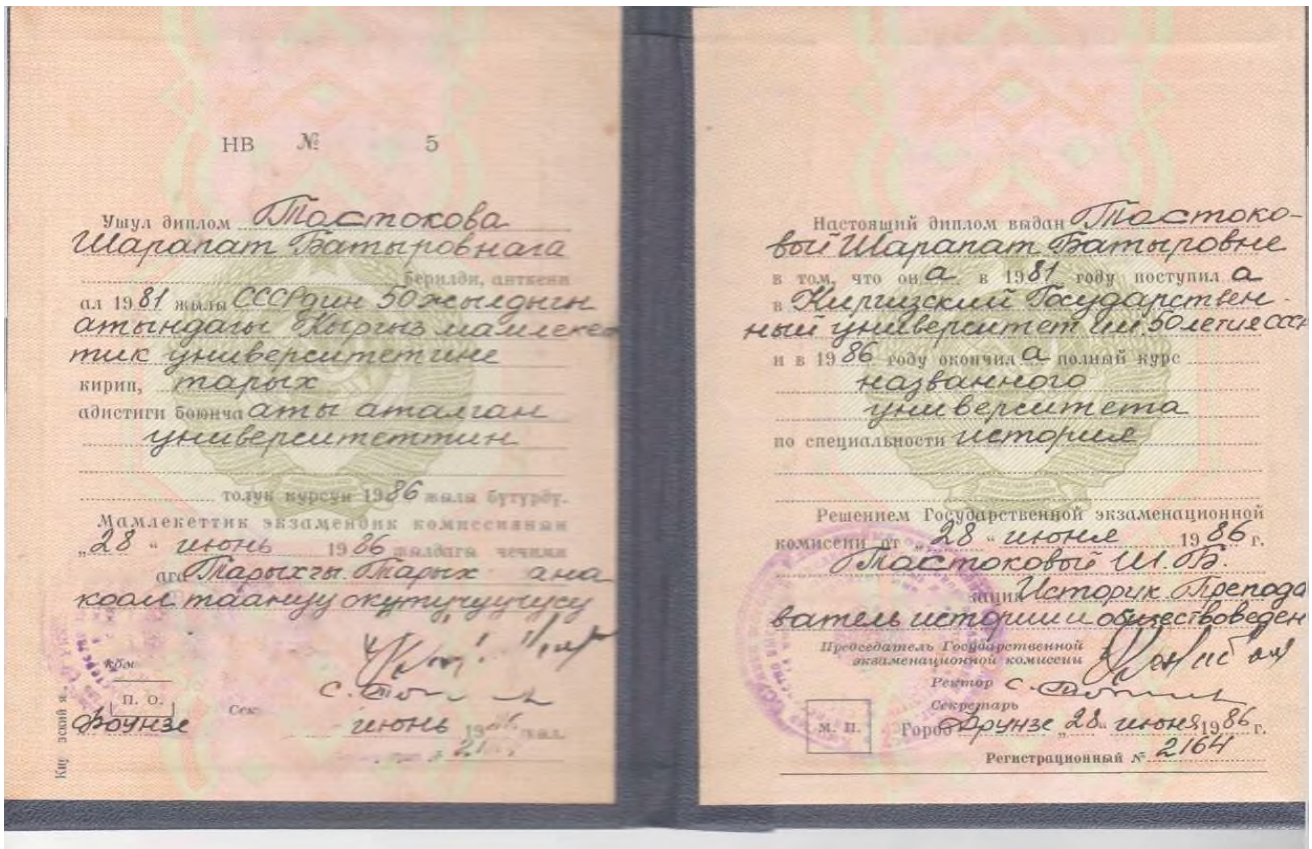 НВ № 5
Ушул диплом Тастокова
Шарапат Батыровнага
берилди, анткени
ал 1981 жылы СССРдин 50 жылдыгы
атындагы Кыргыз мамлекет
тик университетине
кирип, тарых
адистиги боюнча аты аталган
университеттин
толук курсун 1986 жылы бүтүрдү.
Мамлекеттик экзамендик комиссиянын
„28 “ июнь 1986 жылдагы чечими
ага Тарыхчы. Тарых ана
коом таануу окутуучусу
П. О.
Фрунзе
июнь
Настоящий диплом выдан Тастоко-
вой Шарапат Батыровне
в том, что она в 1981 году поступила
в Киргизский Государствен-
ный университет им 50 летия СССР
и в 1986 году окончила полный курс
названного
университета
по специальности история
Решением Государственной экзаменационной
комиссии от „28 “ июня 1986 г.
Тастоковой Ш. Б.
Историк. Препода
ватель истории и обществоведен
Председатель Государственной
экзаменационной комиссии
Ректор
Секретарь
М. П.
Город Фрунзе „28“ июня 1986 г.
Регистрационный № 2164